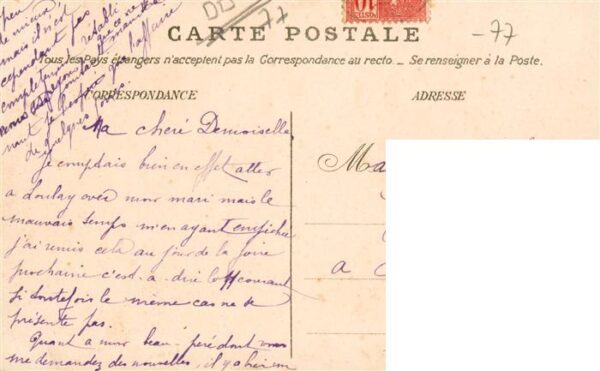 DD
77
-77
CARTE POSTALE
Tous les Pays étrangers n'acceptent pas la Correspondance au recto._ Se renseigner à la Poste.
CORRESPONDANCE
ADRESSE
Ma cheré Demoiselle
Je comptais bien en effet aller
a Loulay avec mon mari mais le
mauvais temps m'en ayant empichée
j'ai remis cela au jour de la foire
prochaine c'est-a-dire le courant
si toutefois le même cas ne se
présente pas.
Quant a mon beau-peré dont vous
me demandez des nouvelles, il y a bien un
peu de mieux
mais il n'est
cependant pas
complètement rétabli
nous
de quelques jours.
Ma
a